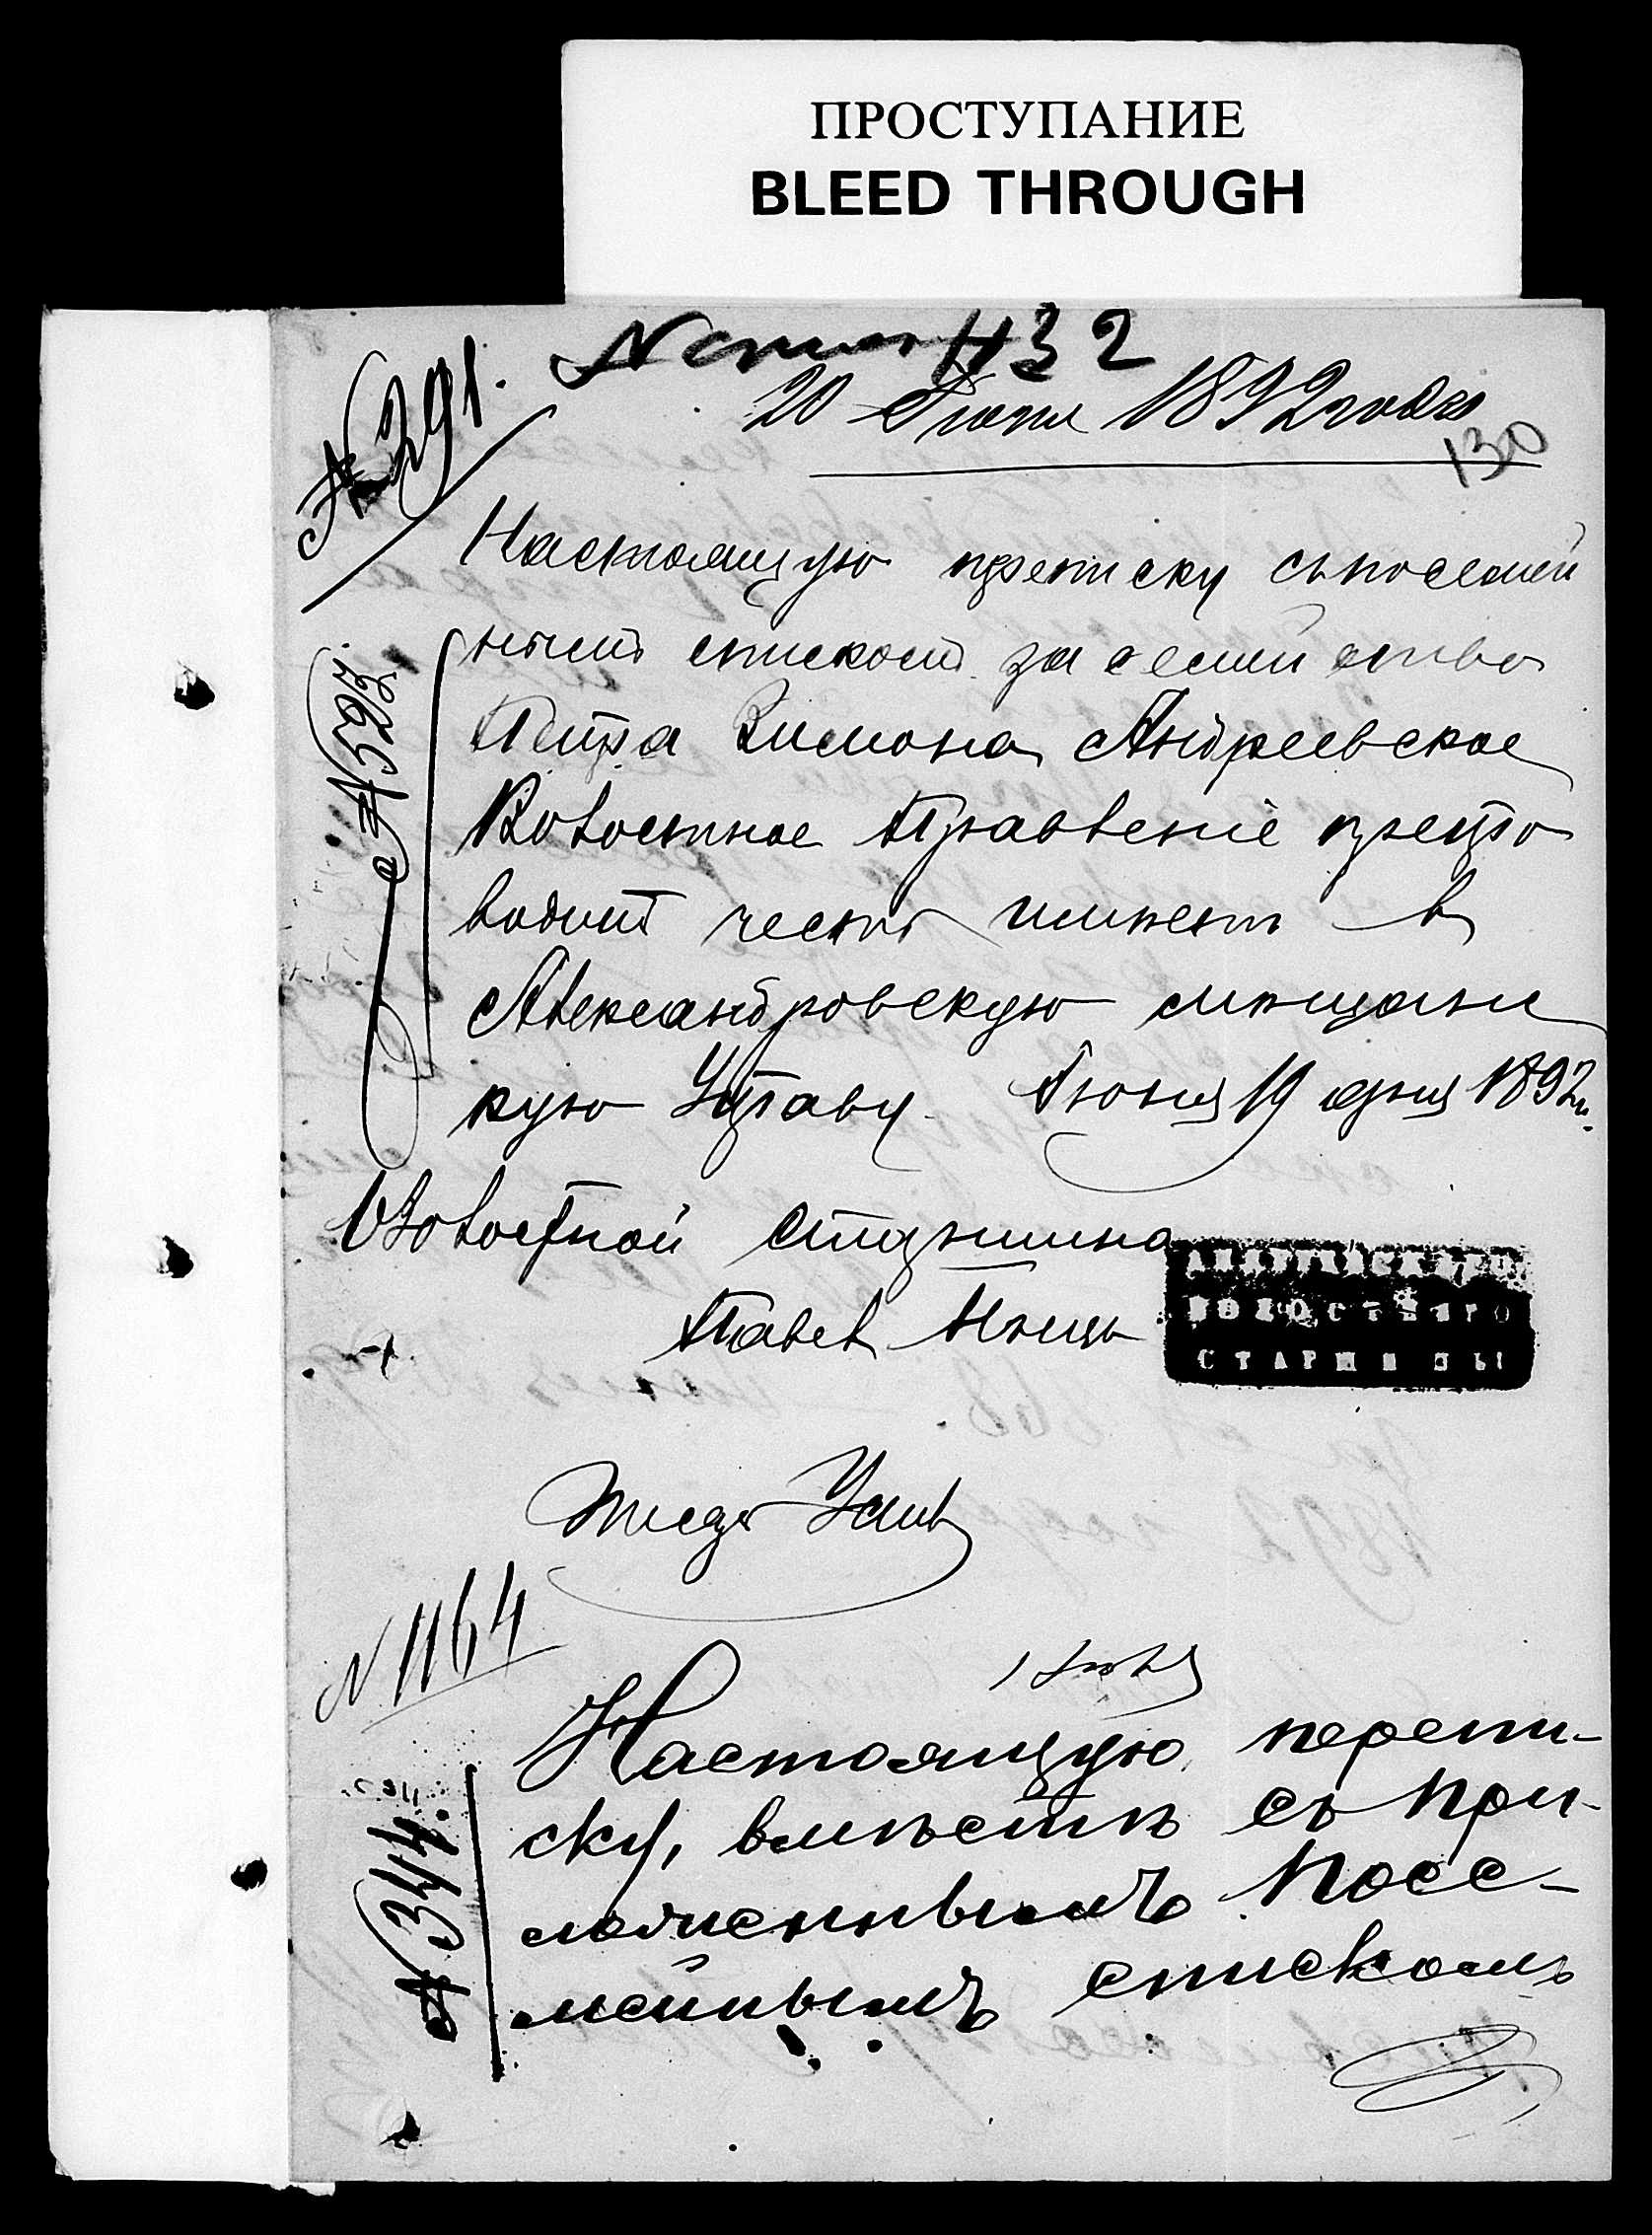 ПРОСТУПАНИЕ
BLEED THROUGH
432
20 Июня 1892 года
130
№ 291.
Настоящую преписку съ посемей
нымъ спискомъ за семейство
Петра Вимона Андреевское
Волостное Правленіе препро
водитъ честь имѣетъ в
Александровскую мѣщанс
кую Управу. Июня 19 дня 1892 г.
№ 593
Волостной Старшина
Павел
АНДРЕЕВСКАГО
ВОЛОСТНАГО
СТАРШИНЫ
Писарь
N 1164
1 Июля
Настоящую перепи-
ску, вмѣстѣ съ при-
ложеннымъ посе-
мейнымъ спискомъ
№ 344.